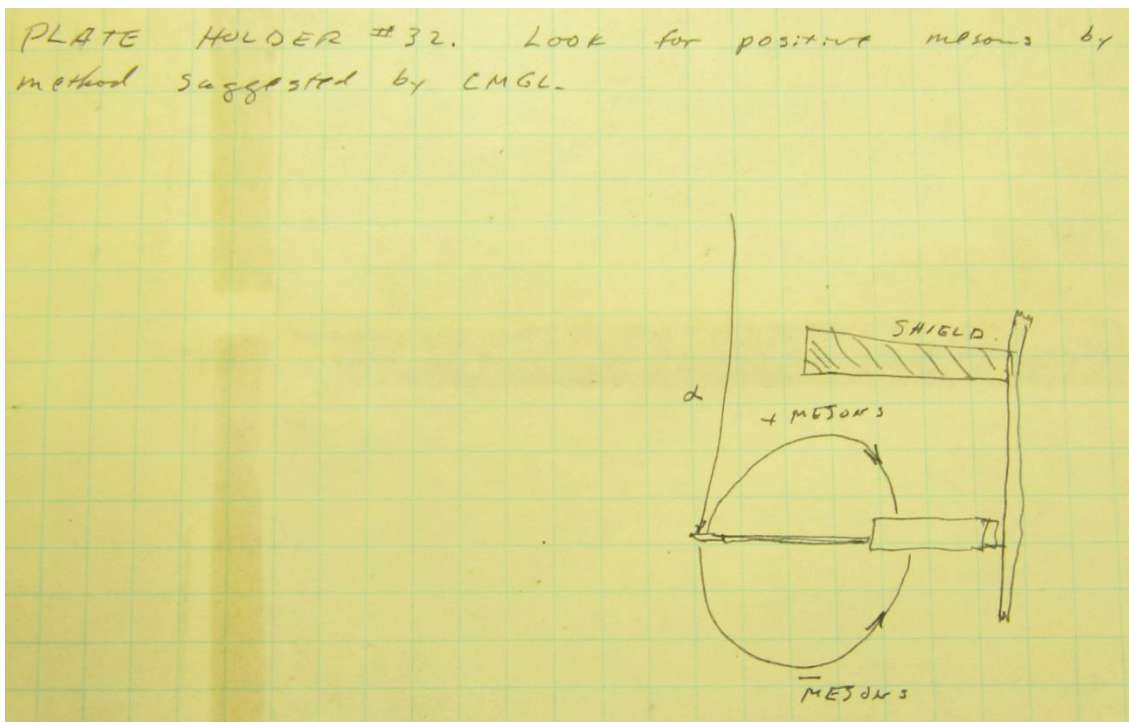 PLATE HOLDER #32. Look for positive mesons by
method suggested by CMGL.
SHIELD.
α
+ MESONS
− MESONS